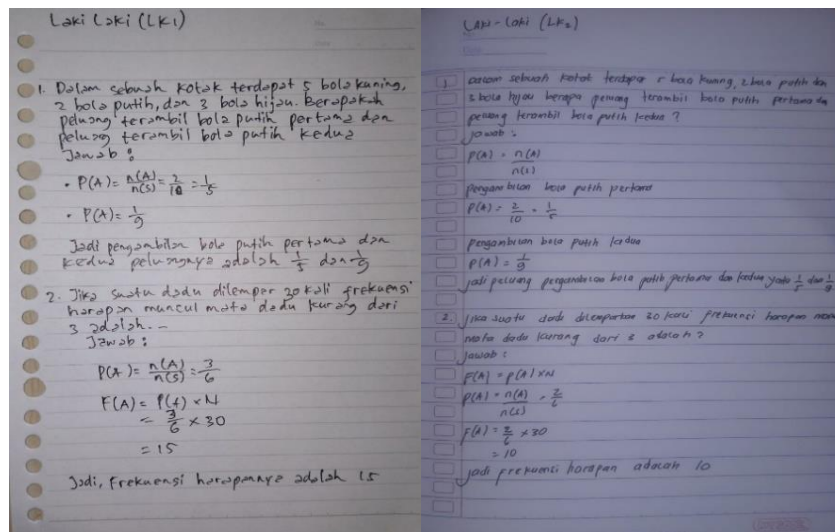 Laki Laki (LK1)
1. Dalam sebuah kotak terdapat 5 bola kuning,
2 bola putih, dan 3 bola hijau. Berapakah
peluang terambil bola putih pertama dan
peluang terambil bola putih kedua
Jawab :
• P(A) = n(A)/n(S) = 2/10 = 1/5
• P(A) = 1/9
Jadi pengambilan bola putih pertama dan
kedua peluangnya adalah 1/5 dan 1/9
2. Jika suatu dadu dilempar 30 kali frekuensi
harapan muncul mata dadu kurang dari
3 adalah...
Jawab :
P(A) = n(A)/n(S) = 3/6
F(A) = P(A) × N
= 3/6 × 30
= 15
Jadi, Frekuensi harapannya adalah 15
Laki-Laki (LK2)
1. Dalam sebuah kotak terdapat 5 bola kuning, 2 bola putih dan
3 bola hijau berapa peluang terambil bola putih pertama dan
peluang terambil bola putih kedua ?
Jawab :
P(A) = n(A)/n(S)
pengambilan bola putih pertama
P(A) = 2/10 = 1/5
pengambilan bola putih kedua
P(A) = 1/9
Jadi peluang pengambilan bola putih pertama dan kedua yaitu 1/5 dan 1/9
2. Jika suatu dadu dilemparkan 30 kali frekuensi harapan
mata dadu kurang dari 3 adalah ?
Jawab :
F(A) = P(A) × N
P(A) = n(A)/n(S) = 2/6
F(A) = 2/6 × 30
= 10
Jadi frekuensi harapan adalah 10